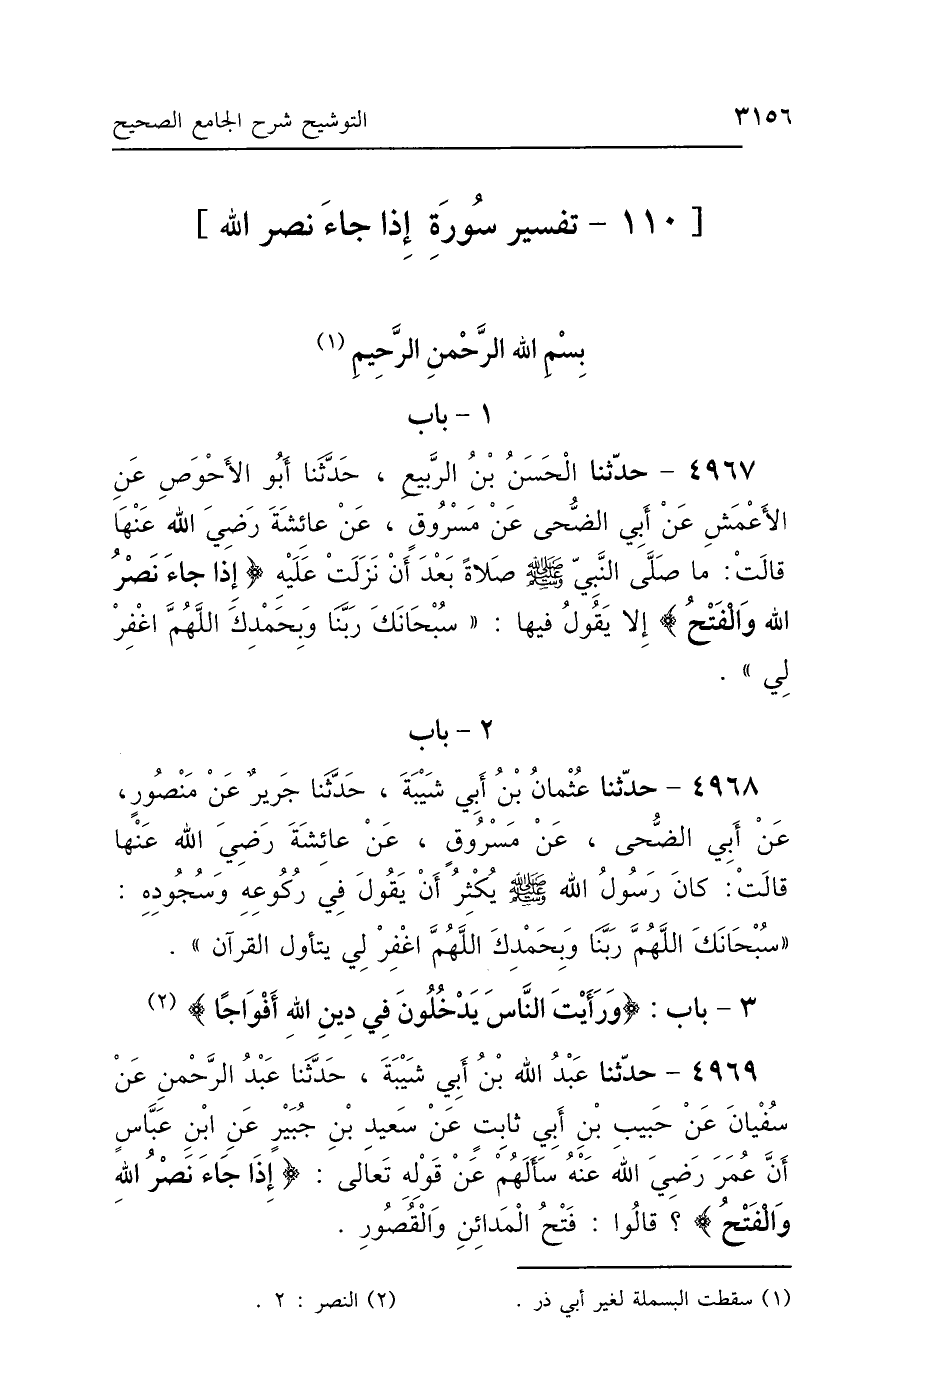 ٣١٥٦ التوشيح شرح الجامع الصحيح
[ ١١٠ - تفسير سُورَةِ إِذا جاءَ نصر الله ]
بِسْمِ الله الرَّحْمنِ الرَّحِيمِ (١)
١ - باب
٤٩٦٧ - حدّثنا الْحَسَنُ بْنُ الرَّبِيعِ ، حَدَّثَنا أَبُو الأَحْوَصِ عَنِ
الأَعْمَشِ عَنْ أَبِي الضُّحى عَنْ مَسْرُوقٍ ، عَنْ عائِشَةَ رَضِيَ الله عَنْهَا
قالَتْ: ما صَلَّى النَّبِيّ ﷺ صَلاةً بَعْدَ أَنْ نَزَلَتْ عَلَيْهِ ﴿ إِذا جاءَ نَصْرُ
الله وَالْفَتْحُ ﴾ إِلا يَقُولُ فيها : « سُبْحَانَكَ رَبَّنَا وَبِحَمْدِكَ اللَّهُمَّ اغْفِرْ
لِي » .
٢ - باب
٤٩٦٨ - حدّثنا عُثْمانُ بْنُ أَبِي شَيْبَةَ ، حَدَّثَنا جَرِيرٌ عَنْ مَنْصُورٍ،
عَنْ أَبِي الضُّحى ، عَنْ مَسْرُوقٍ ، عَنْ عائِشَةَ رَضِيَ الله عَنْها
قالَتْ: كانَ رَسُولُ الله ﷺ يُكْثِرُ أَنْ يَقُولَ فِي رُكُوعِهِ وَسُجُودِهِ :
«سُبْحَانَكَ اللَّهُمَّ رَبَّنَا وَبِحَمْدِكَ اللَّهُمَّ اغْفِرْ لِي يتأول القرآن » .
٣ - باب : ﴿وَرَأَيْتَ النَّاسَ يَدْخُلُونَ فِي دِينِ اللهِ أَفْوَاجًا ﴾ (٢)
٤٩٦٩ - حدّثنا عَبْدُ الله بْنُ أَبِي شَيْبَةَ ، حَدَّثَنا عَبْدُ الرَّحْمنِ عَنْ
سُفْيانَ عَنْ حَبِيبِ بْنِ أَبِي ثابِتٍ عَنْ سَعِيدِ بْنِ جُبَيْرٍ عَنِ ابْنِ عَبَّاسٍ
أَنَّ عُمَرَ رَضِيَ الله عَنْهُ سَأَلَهُمْ عَنْ قَوْلِهِ تَعالى : ﴿ إِذَا جَاءَ نَصْرُ اللهِ
وَالْفَتْحُ ﴾ ؟ قالُوا : فَتْحُ الْمَدائِنِ وَالْقُصُورِ .
(١) سقطت البسملة لغير أبي ذر . (٢) النصر : ٢ .